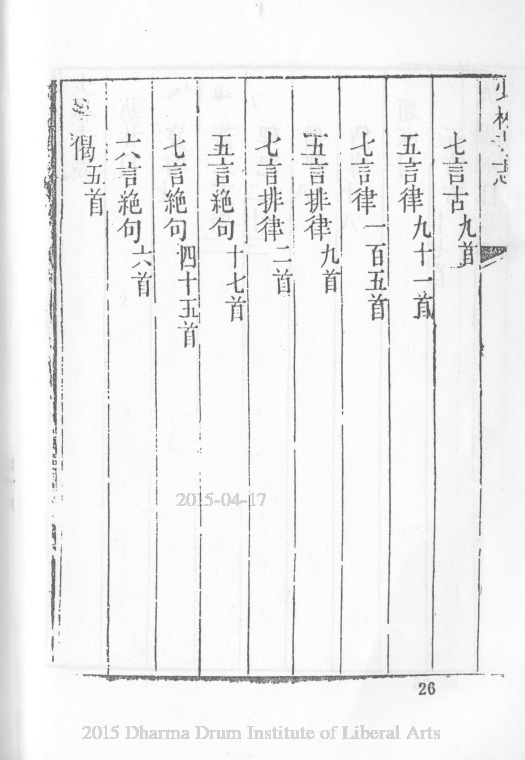 少林寺志
七言古九首
五言律九十一首
七言律一百五首
五言排律九首
七言排律二首
五言絶句十七首
七言絶句四十五首
六言絶句六首
偈五首
2015-04-17
26
2015 Dharma Drum Institute of Liberal Arts